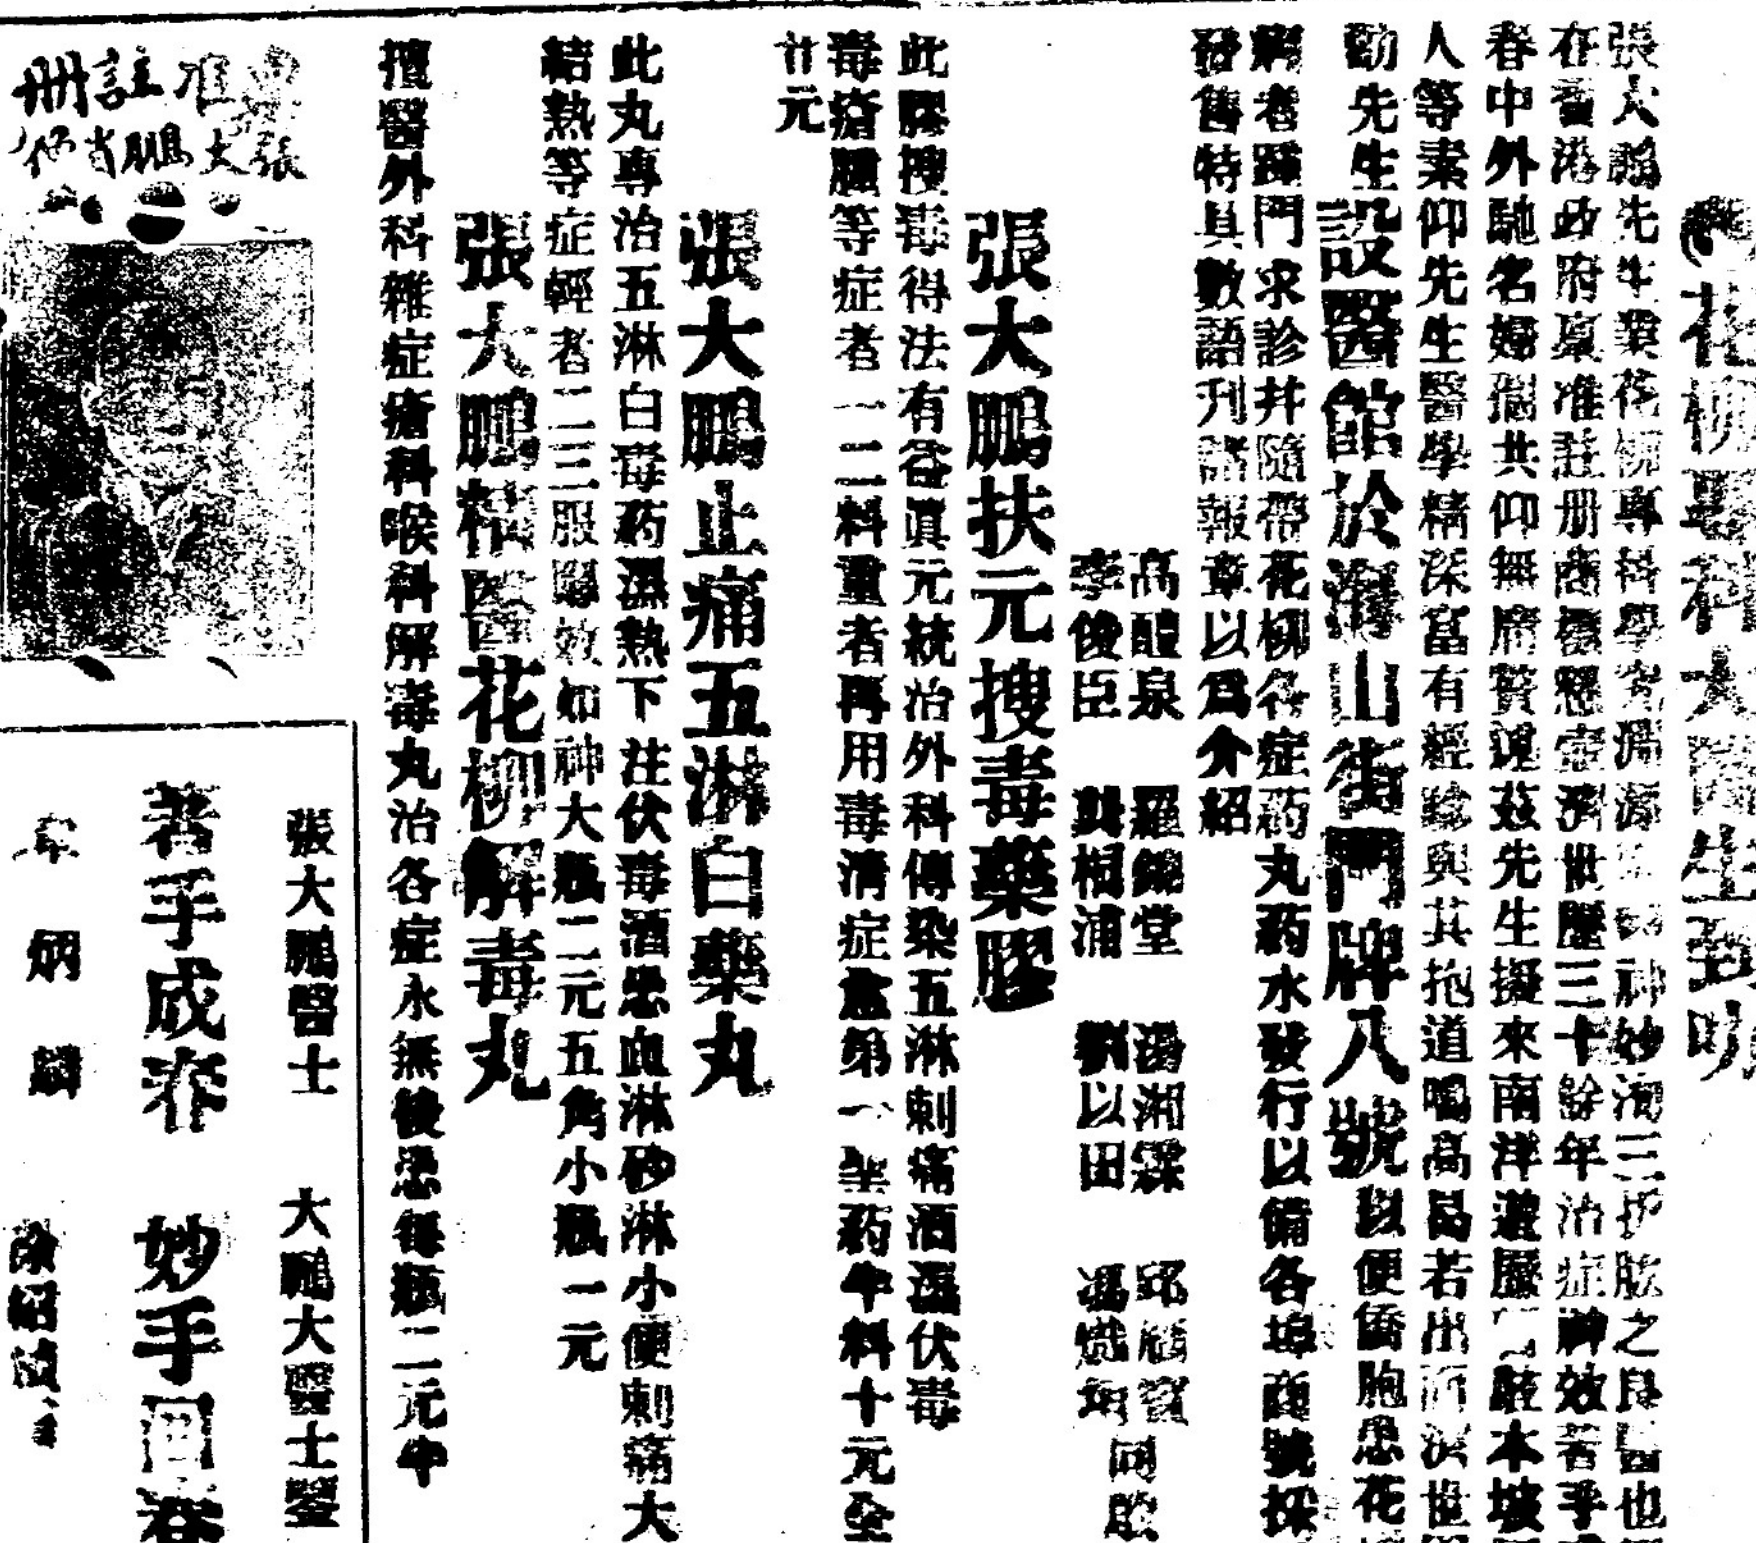 花柳毒科大醫生到叻
張大鵬先生業花柳專科學究淵源神妙洵三折肱之良醫也
在香港政府稟准註册商標懸壺濟世歷三十餘年治症神效著手
春中外馳名婦孺共仰無庸贅述茲先生擬來南洋遊歷駐本坡
人等素仰先生醫學精深富有經驗與其抱道鳴高曷若出而濟世
勸先生設醫館於漆山街門牌八號以便僑胞患花
病者踵門求診并隨帶花柳各症葯丸葯水發行以備各埠商號採
發售特具數語刊諸報章以爲介紹
高醴泉 羅錦堂 湯湘霖 邱
李俊臣 龔相浦 劉以田 馮
同啟
張大鵬扶元搜毒藥膠
此膠搜毒得法有益眞元統治外科傳染五淋刺痛酒濕伏毒
毒瘡腫等症者一二料重者再用毒清症盡第一聖葯半料十元全
廿元
張大鵬止痛五淋白藥丸
此丸專治五淋白毒葯濕熱下注伏毒酒患血淋砂淋小便刺痛大
結熱等症輕者二三服嚴效如神大瓶二元五角小瓶一元
張大鵬精醫花柳解毒丸
擅醫外科雜症瘡科喉科解毒丸治各症永無後患每瓶二元半
准註册
張大鵬肖像
張大鵬醫士
著手成春
炳麟
大鵬大醫士鑒
妙手回春
紹